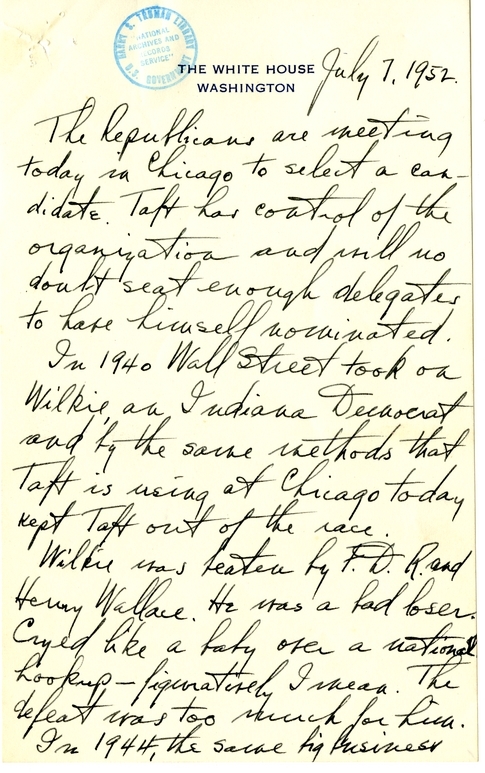 HARRY S. TRUMAN LIBRARY
"NATIONAL
ARCHIVES AND
RECORDS
SERVICE"
U.S. GOVERNMENT
THE WHITE HOUSE
WASHINGTON
July 7, 1952.
The Republicans are meeting
today in Chicago to select a can-
didate. Taft has control of the
organization and will no
doubt seat enough delegates
to have himself nominated.
In 1940 Wall Street took on
Wilkie, an Indiana Democrat
and by the same methods that
Taft is using at Chicago today
kept Taft out of the race.
Wilkie was beaten by F.D.R. and
Henry Wallace. He was a bad loser.
Cryed like a baby over a national
hookup—figuratively I mean. The
defeat was too much for him.
In 1944, the same big business